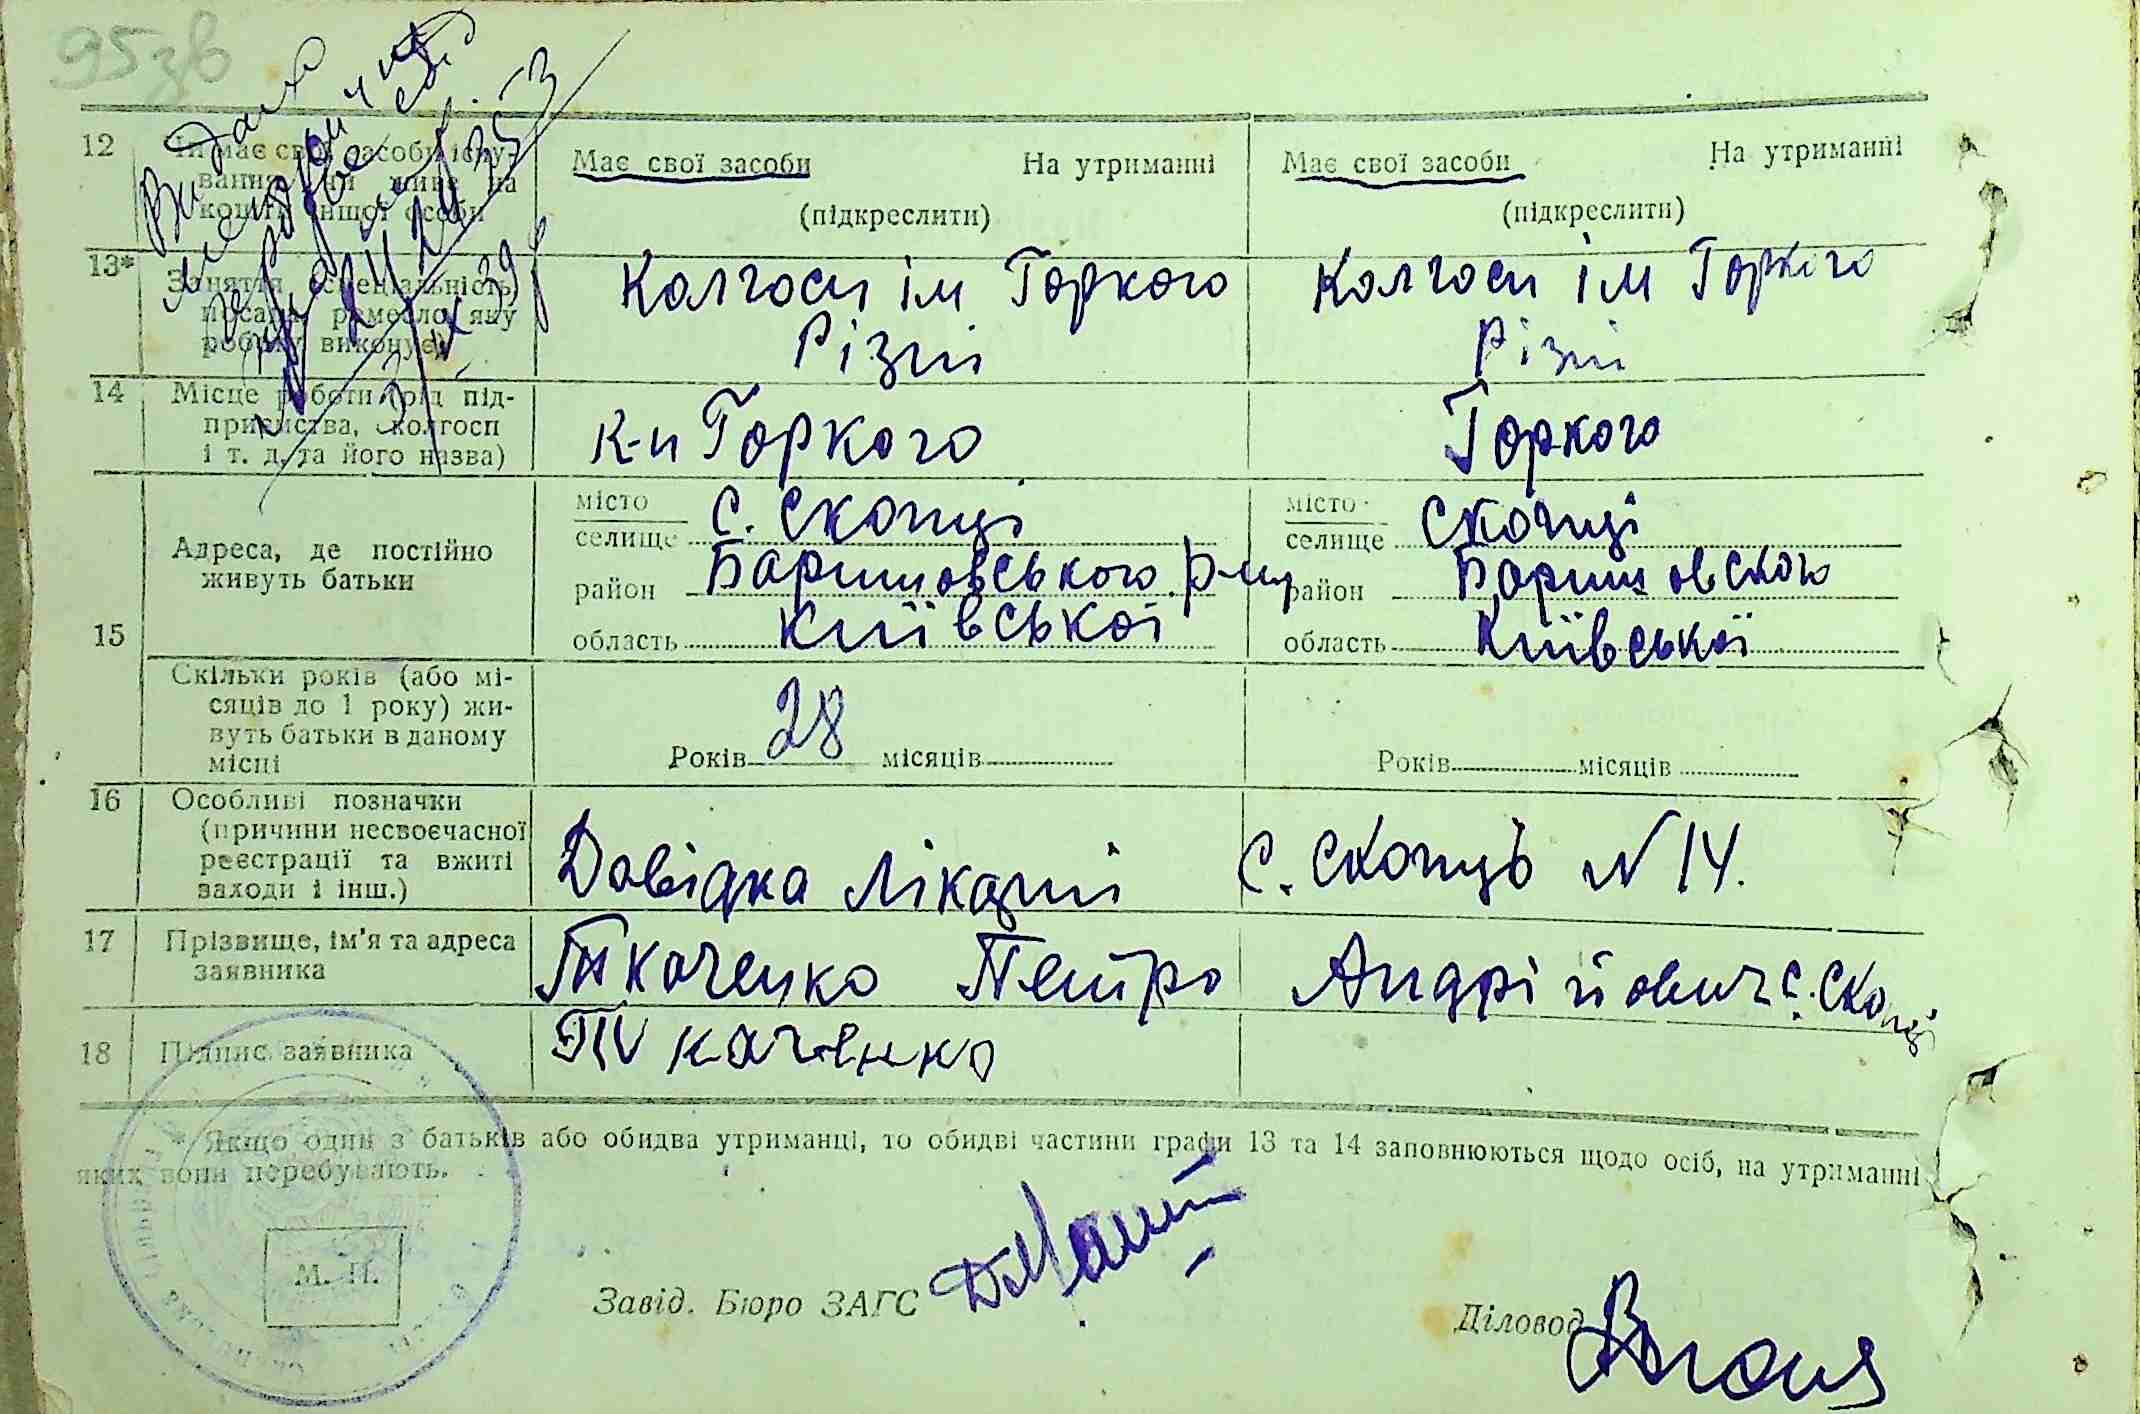 95зв
12 Чи має свої засоби існу- Має свої засоби На утриманні Має свої засоби На утриманні
вання чи живе на
кошти іншої особи (підкреслити) (підкреслити)
13* Заняття (спеціальність, Колгосп ім Горкого Колгосп ім Горкого
посада, ремесло, яку Різні Різні
роботу виконує)
14 Місце роботи (рід під- к-п Горкого Горкого
приємства, колгосп
і т. д. та його назва)
15 Адреса, де постійно живуть батьки
місто селище с. Скопці місто селище Скопці
район Баришовського р-ну район Баришовского
область Київської область Київської
Скільки років (або мі-
сяців до 1 року) жи-
вуть батьки в даному
місці Років 28 місяців Років місяців
16 Особливі позначки
(причини несвоєчасної
реєстрації та вжиті Довідка лікарні с. Скопців N 14.
заходи і інш.)
17 Прізвище, ім'я та адреса Ткаченко Петро Андрійович с. Скопці
заявника
18 Підпис заявника Ткаченко
* Якщо один з батьків або обидва утриманці, то обидві частини графи 13 та 14 заповнюються щодо осіб, на утриманні
яких вони перебувають.
М. П.
Завід. Бюро ЗАГС
Діловод